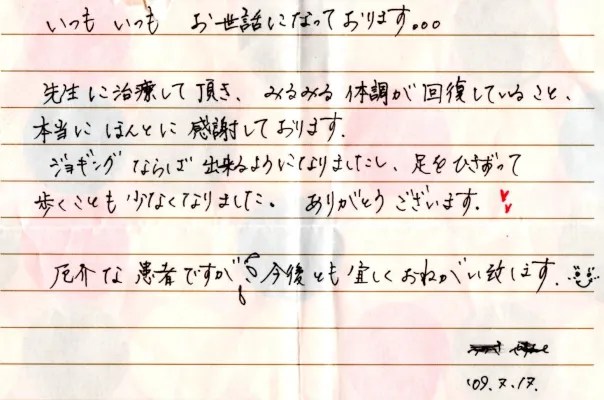 いつも いつも お世話になっております...
先生に治療して頂き、みるみる体調が回復していること、
本当に ほんとに 感謝しております.
ジョギングならば 出来るようになりましたし、足をひきずって
歩くことも少なくなりました。 ありがとう ございます.
厄介な 患者ですが 今後とも 宜しく おねがい致します.
'09.7.17.